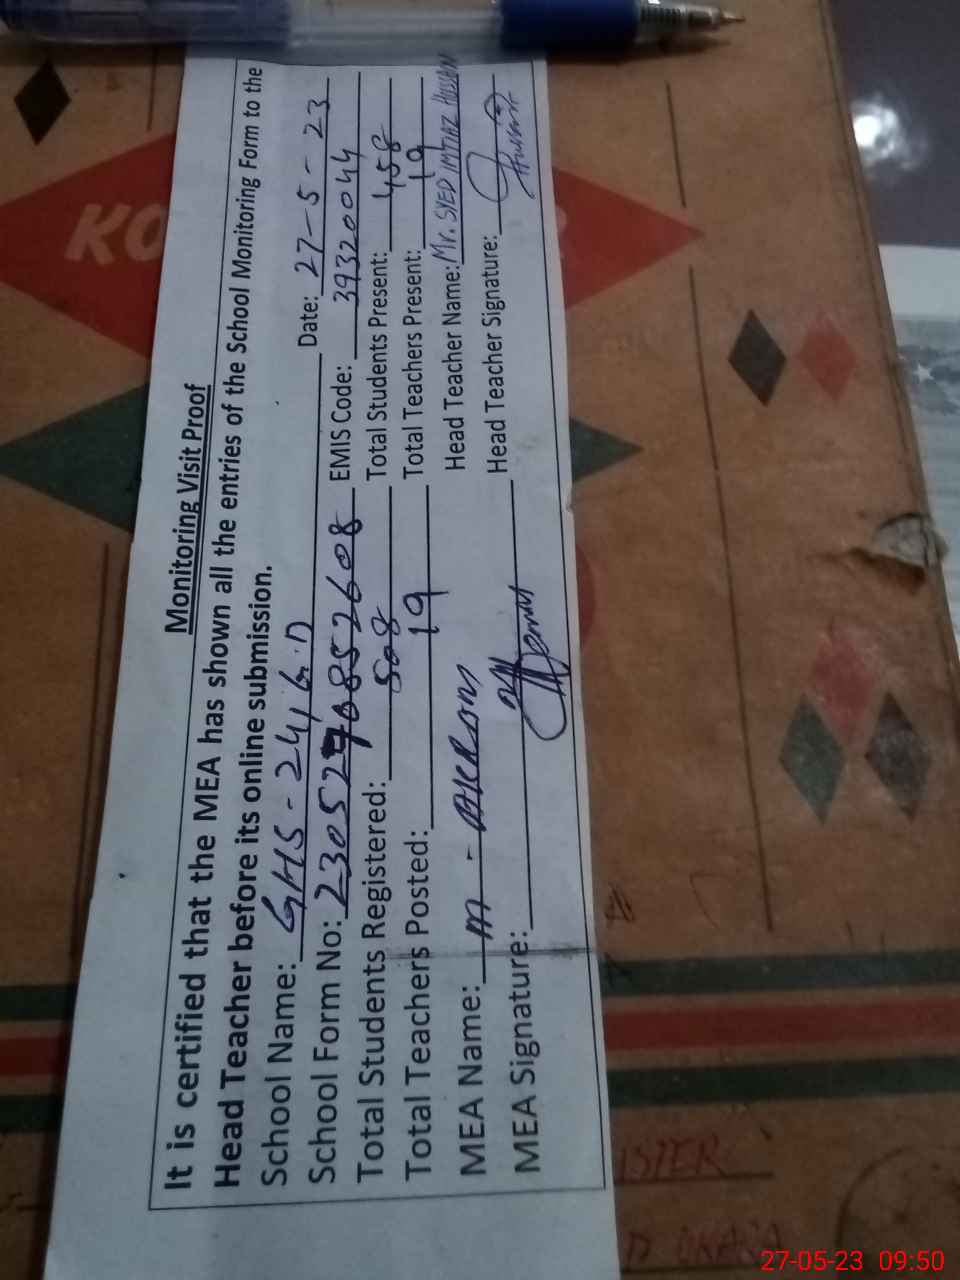 Monitoring Visit Proof
It is certified that the MEA has shown all the entries of the School Monitoring Form to the
Head Teacher before its online submission.
School Name: GHS-24/G.D Date: 27-5-23
School Form No: 2305270852608 EMIS Code: 39320044
Total Students Registered: 508 Total Students Present: 458
Total Teachers Posted: 19 Total Teachers Present: 19
MEA Name: M - Head Teacher Name: Mr. SYED IMTIAZ HUSSAIN
MEA Signature: Head Teacher Signature:
KO R
ISTER
OKARA
27-05-23 09:50